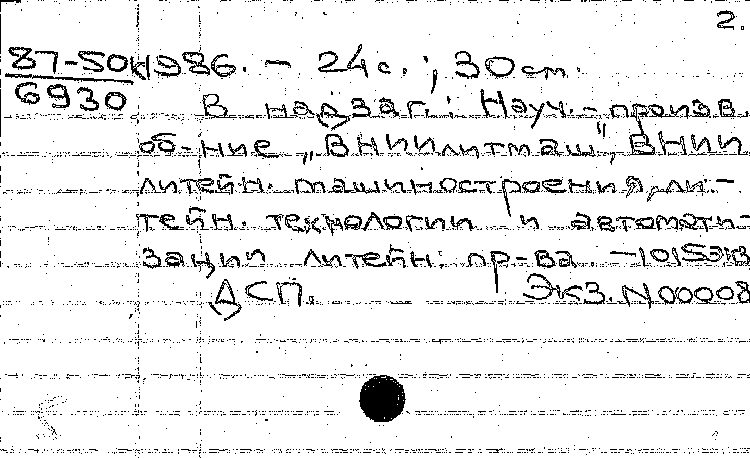 2.
87-50к 1986. - 24 с.; 30 см.
6930
В надзаг.: Науч.-произв.
об-ние „ВНИИлитмаш", ВНИИ
литейн. машиностроения, ли-
тейн. технологии и автомати-
зации литейн. пр-ва. -
ДСП. Экз. N 00008